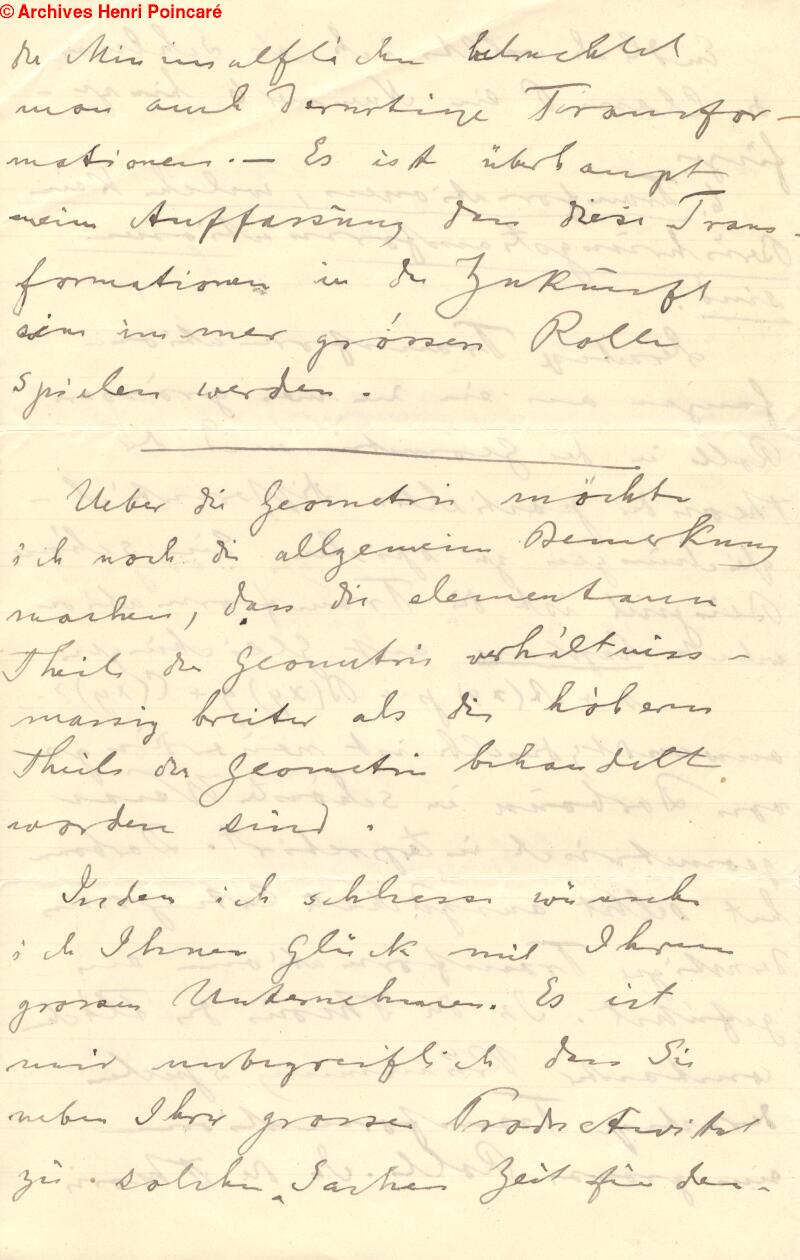 © Archives Henri Poincaré
der Minimalflächen betrachtet
man auch derartige Transfor-
mationen. — Es ist überhaupt
meine Auffassung dass diese Trans-
formationen in der Zukunft
eine immer grössere Rolle
spielen werden.
Ueber die Geometrie möchte
ich noch die allgemeine Bemerkung
machen, dass die elementaren
Theile der Geometrie verhältniss-
massig breiter als die höheren
Theile der Geometrie behandelt
worden sind.
Indem ich schliesse wünsche
ich Ihnen Glück mit Ihrem
grossen Unternehmen. Es ist
mir unbegreiflich dass Sie
neben Ihrer grossen Productivität
zu solchen Sachen Zeit finden.